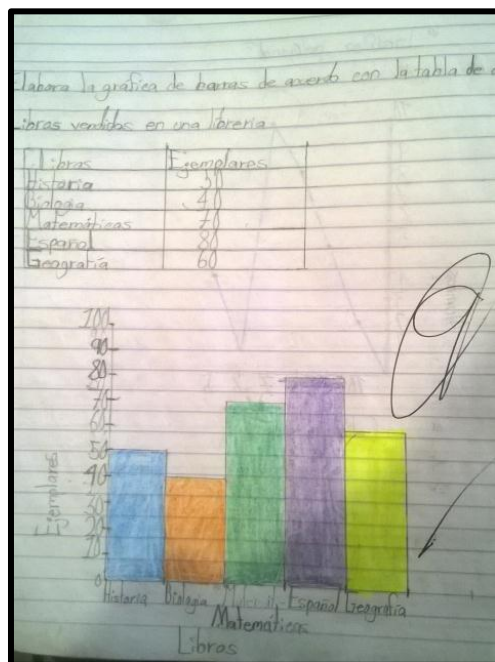 Elabora la gráfica de barras de acuerdo con la tabla de
Libros vendidos en una librería
Libros Ejemplares
Historia 50
Biología 40
Matemáticas 70
Español 80
Geografía 60
100
90
80
70
60
50
40
30
20
10
0
Ejemplares
Historia Biología Español Geografía
Matemáticas
Libros